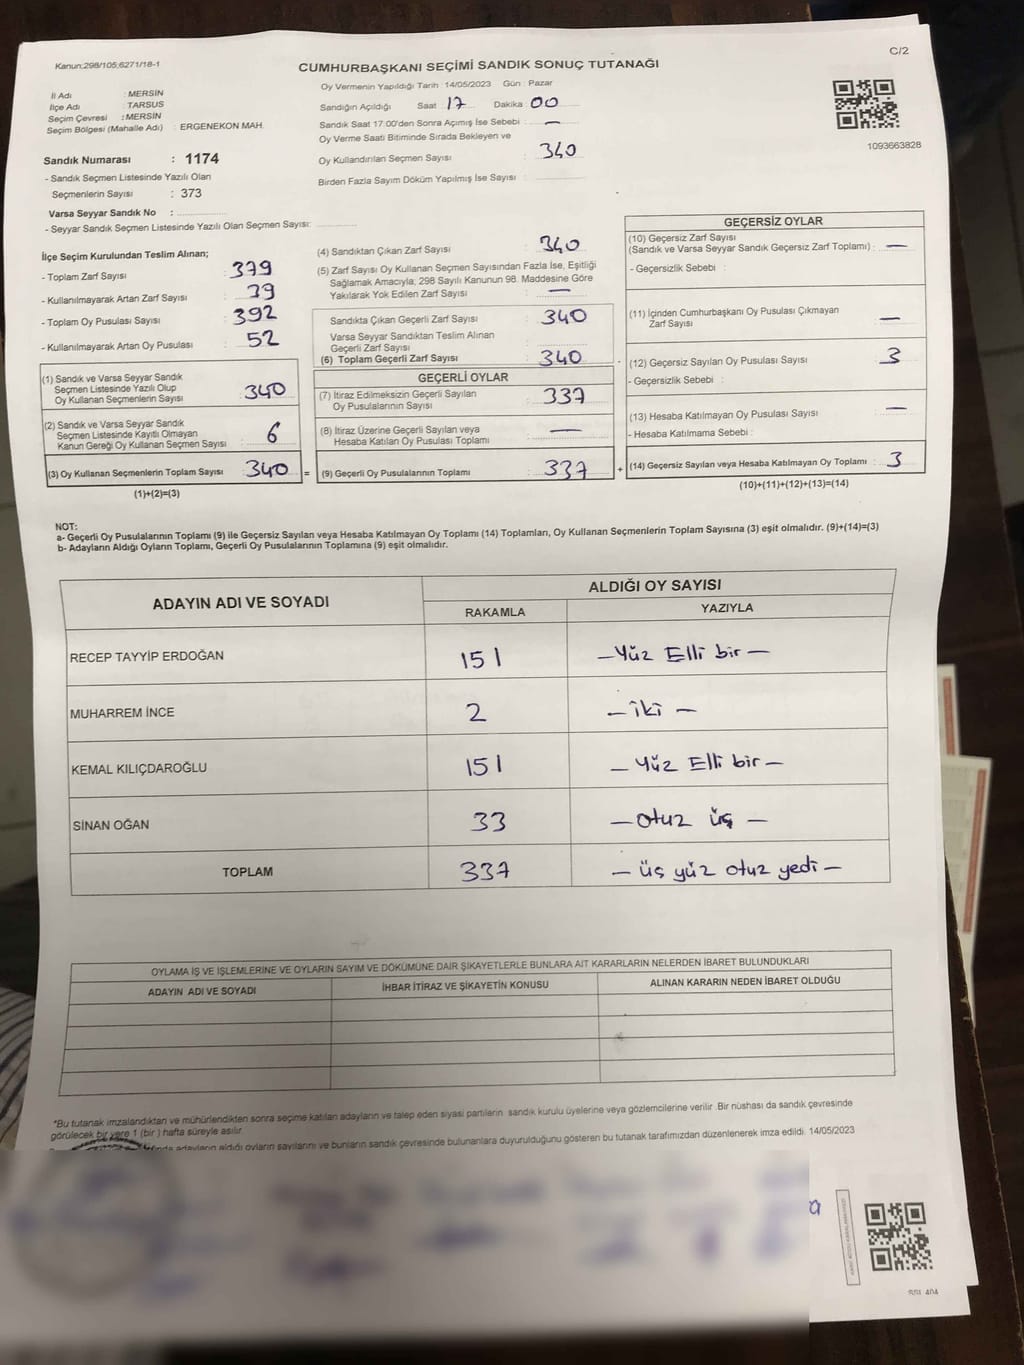 C/2
Kanun:298/105;6271/18-1
CUMHURBAŞKANI SEÇİMİ SANDIK SONUÇ TUTANAĞI
Oy Vermenin Yapıldığı Tarih : 14/05/2023 Gün : Pazar
İl Adı : MERSİN
İlçe Adı : TARSUS
Seçim Çevresi : MERSİN
Seçim Bölgesi (Mahalle Adı) : ERGENEKON MAH.
Sandığın Açıldığı Saat : 17 Dakika : 00
Sandık Saat 17:00'den Sonra Açımış İse Sebebi : —
Oy Verme Saati Bitiminde Sırada Bekleyen ve
Oy Kullandırılan Seçmen Sayısı : 340
Birden Fazla Sayım Döküm Yapılmış İse Sayısı :
1093663828
Sandık Numarası : 1174
- Sandık Seçmen Listesinde Yazılı Olan
Seçmenlerin Sayısı : 373
Varsa Seyyar Sandık No :
- Seyyar Sandık Seçmen Listesinde Yazılı Olan Seçmen Sayısı:
İlçe Seçim Kurulundan Teslim Alınan;
- Toplam Zarf Sayısı : 379
- Kullanılmayarak Artan Zarf Sayısı : 39
- Toplam Oy Pusulası Sayısı : 392
- Kullanılmayarak Artan Oy Pusulası : 52
(1) Sandık ve Varsa Seyyar Sandık
Seçmen Listesinde Yazılı Olup
Oy Kullanan Seçmenlerin Sayısı : 340
(2) Sandık ve Varsa Seyyar Sandık
Seçmen Listesinde Kayıtlı Olmayan
Kanun Gereği Oy Kullanan Seçmen Sayısı : 6
(3) Oy Kullanan Seçmenlerin Toplam Sayısı : 340 =
(1)+(2)=(3)
(4) Sandıktan Çıkan Zarf Sayısı : 340
(5) Zarf Sayısı Oy Kullanan Seçmen Sayısından Fazla İse, Eşitliği
Sağlamak Amacıyla, 298 Sayılı Kanunun 98. Maddesine Göre
Yakılarak Yok Edilen Zarf Sayısı : —
Sandıkta Çıkan Geçerli Zarf Sayısı : 340
Varsa Seyyar Sandıktan Teslim Alınan
Geçerli Zarf Sayısı :
(6) Toplam Geçerli Zarf Sayısı : 340
GEÇERLİ OYLAR
(7) İtiraz Edilmeksizin Geçerli Sayılan
Oy Pusulalarının Sayısı : 337
(8) İtiraz Üzerine Geçerli Sayılan veya
Hesaba Katılan Oy Pusulası Toplamı : —
(9) Geçerli Oy Pusulalarının Toplamı : 337 +
GEÇERSİZ OYLAR
(10) Geçersiz Zarf Sayısı
(Sandık ve Varsa Seyyar Sandık Geçersiz Zarf Toplamı) : —
- Geçersizlik Sebebi :
(11) İçinden Cumhurbaşkanı Oy Pusulası Çıkmayan
Zarf Sayısı : —
(12) Geçersiz Sayılan Oy Pusulası Sayısı : 3
- Geçersizlik Sebebi :
(13) Hesaba Katılmayan Oy Pusulası Sayısı : —
- Hesaba Katılmama Sebebi :
(14) Geçersiz Sayılan veya Hesaba Katılmayan Oy Toplamı : 3
(10)+(11)+(12)+(13)=(14)
NOT:
a- Geçerli Oy Pusulalarının Toplamı (9) ile Geçersiz Sayılan veya Hesaba Katılmayan Oy Toplamı (14) Toplamları, Oy Kullanan Seçmenlerin Toplam Sayısına (3) eşit olmalıdır. (9)+(14)=(3)
b- Adayların Aldığı Oyların Toplamı, Geçerli Oy Pusulalarının Toplamına (9) eşit olmalıdır.
ADAYIN ADI VE SOYADI
ALDIĞI OY SAYISI
RAKAMLA YAZIYLA
RECEP TAYYİP ERDOĞAN 151 — Yüz Elli bir —
MUHARREM İNCE 2 — iki —
KEMAL KILIÇDAROĞLU 151 — Yüz Elli bir —
SİNAN OĞAN 33 — otuz üç —
TOPLAM 337 — üç yüz otuz yedi —
OYLAMA İŞ VE İŞLEMLERİNE VE OYLARIN SAYIM VE DÖKÜMÜNE DAİR ŞİKAYETLERLE BUNLARA AİT KARARLARIN NELERDEN İBARET BULUNDUKLARI
ADAYIN ADI VE SOYADI İHBAR İTİRAZ VE ŞİKAYETİN KONUSU ALINAN KARARIN NEDEN İBARET OLDUĞU
*Bu tutanak imzalandıktan ve mühürlendikten sonra seçime katılan adayların ve talep eden siyasi partilerin sandık kurulu üyelerine veya gözlemcilerine verilir. Bir nüshası da sandık çevresinde
görülecek bir yere 1 (bir) hafta süreyle asılır.
adayların aldığı oyların sayılarını ve bunların sandık çevresinde bulunanlara duyurulduğunu gösteren bu tutanak tarafımızdan düzenlenerek imza edildi. 14/05/2023